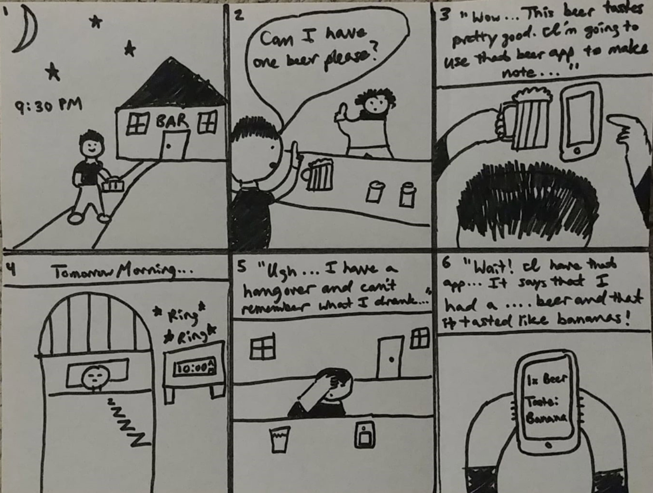 1
9:30 PM
BAR
2
Can I have
one beer please?
3 "Wow... This beer tastes
pretty good. I'm going to
use that beer app to make
note..."
4 Tomorrow Morning...
*Ring*
*Ring*
10:00
5 "Ugh... I have a
hangover and can't
remember what I drank..."
6 "Wait! I have that
app... It says that I
had a .... beer and that
it tasted like bananas!
1x Beer
Taste:
Banana
ZZZZ